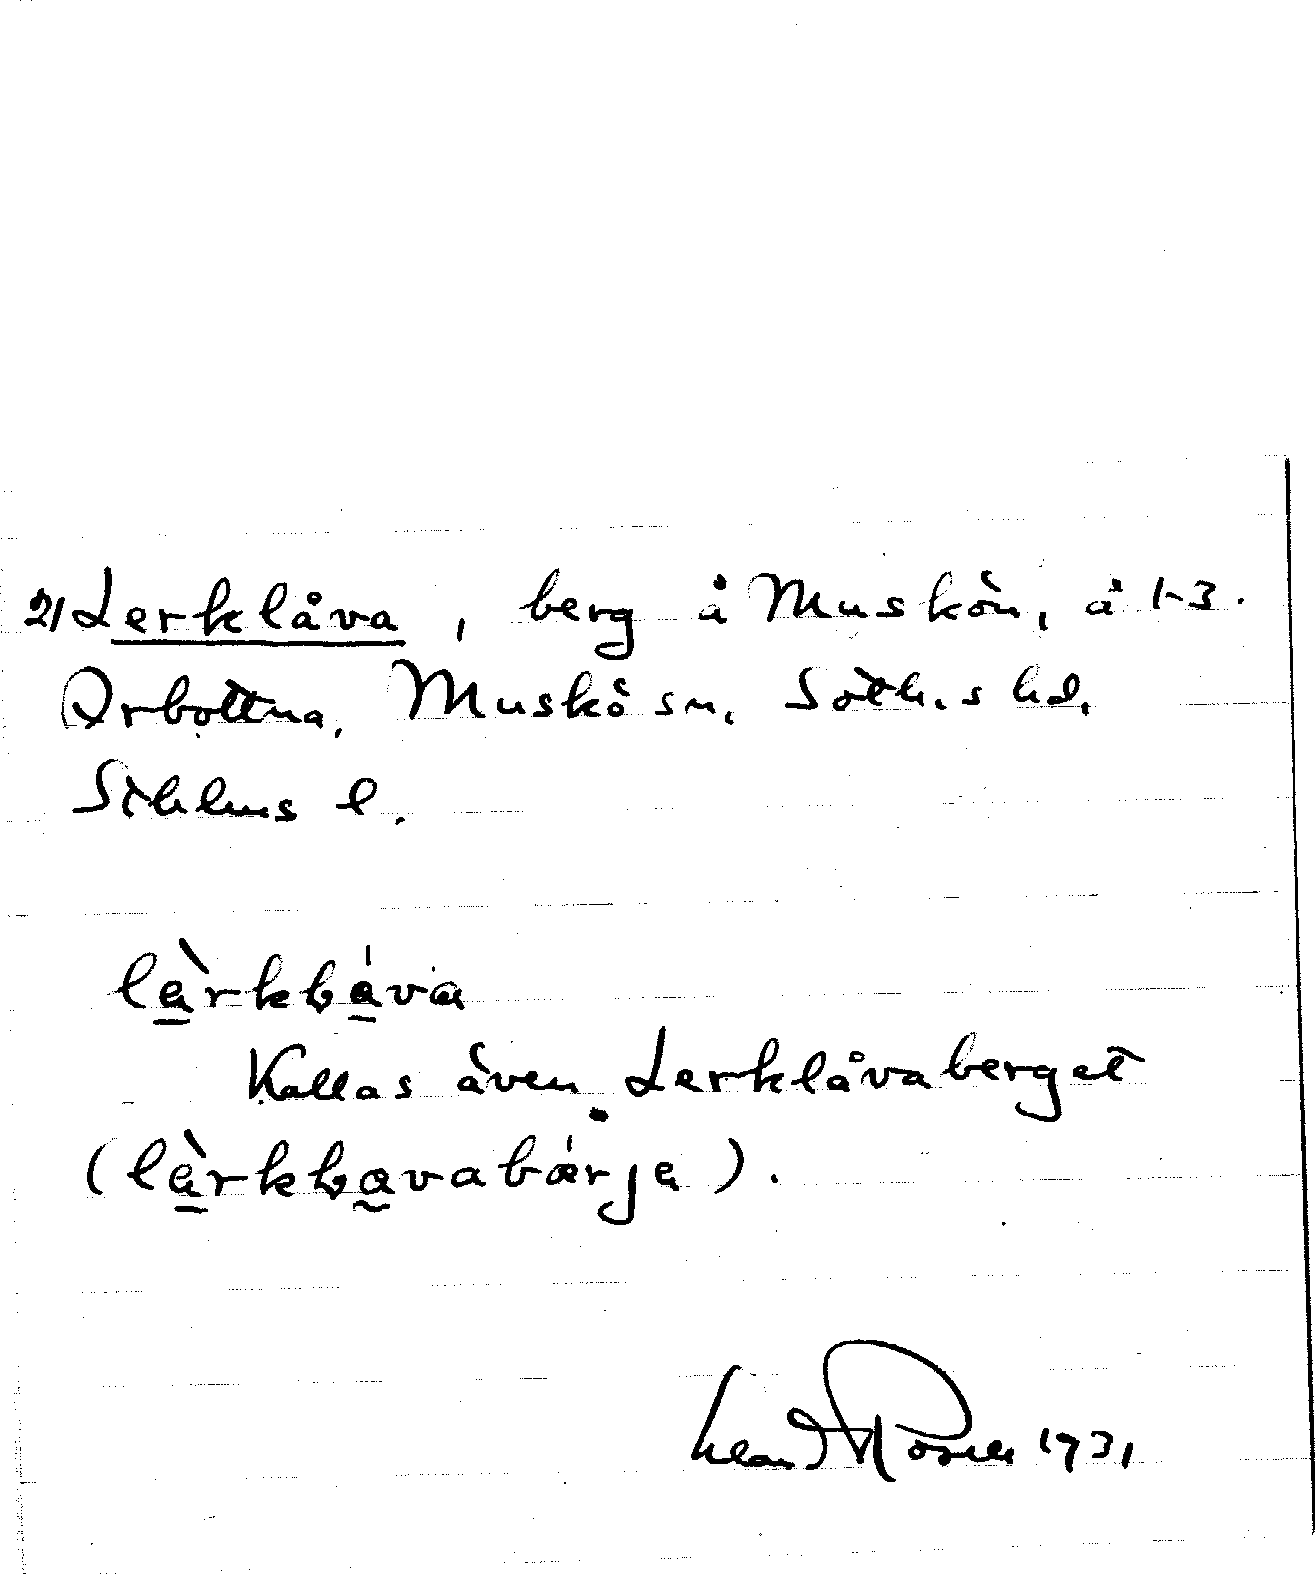 2/ Lerklåva, berg å Muskön, å 1-3.
Arbottna, Muskö sn, Soth.s hd,
Sthlms l.
lа̀rkla̍va
Kallas även Lerklåvaberget
(lа̀rklavabæ̍rja).
1931